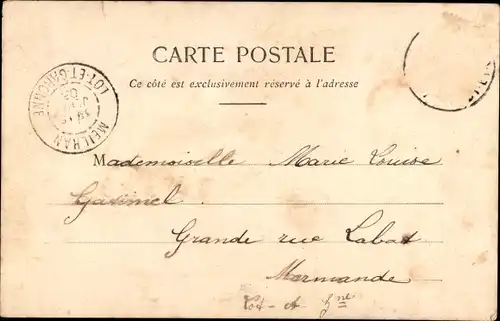 CARTE POSTALE
Ce côté est exclusivement réservé à l'adresse
MEILHAN
LOT-ET-GARONNE
Mademoiselle Marie Louise
Grande rue Labat
Marmande
Lot - et - Gne